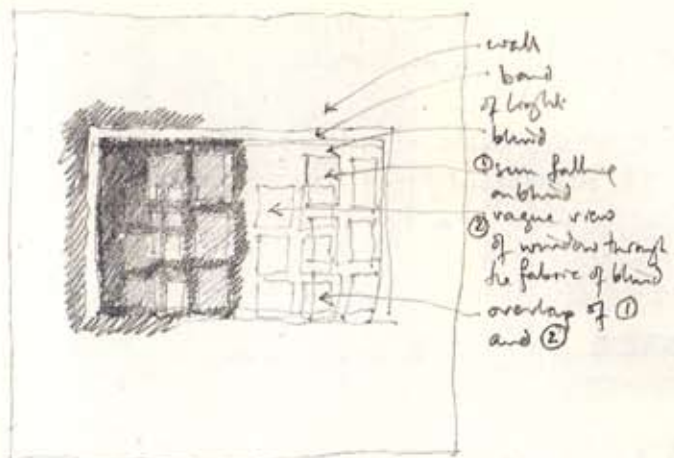 wall
band
of light
blind
① sun falling
on blind
② vague view
of window through
the fabric of blind
overlap of ①
and ②